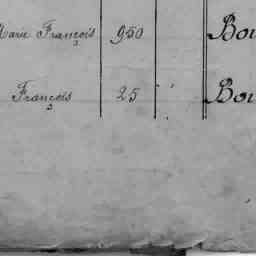 Marie François 950 Bou
François 25 Bou